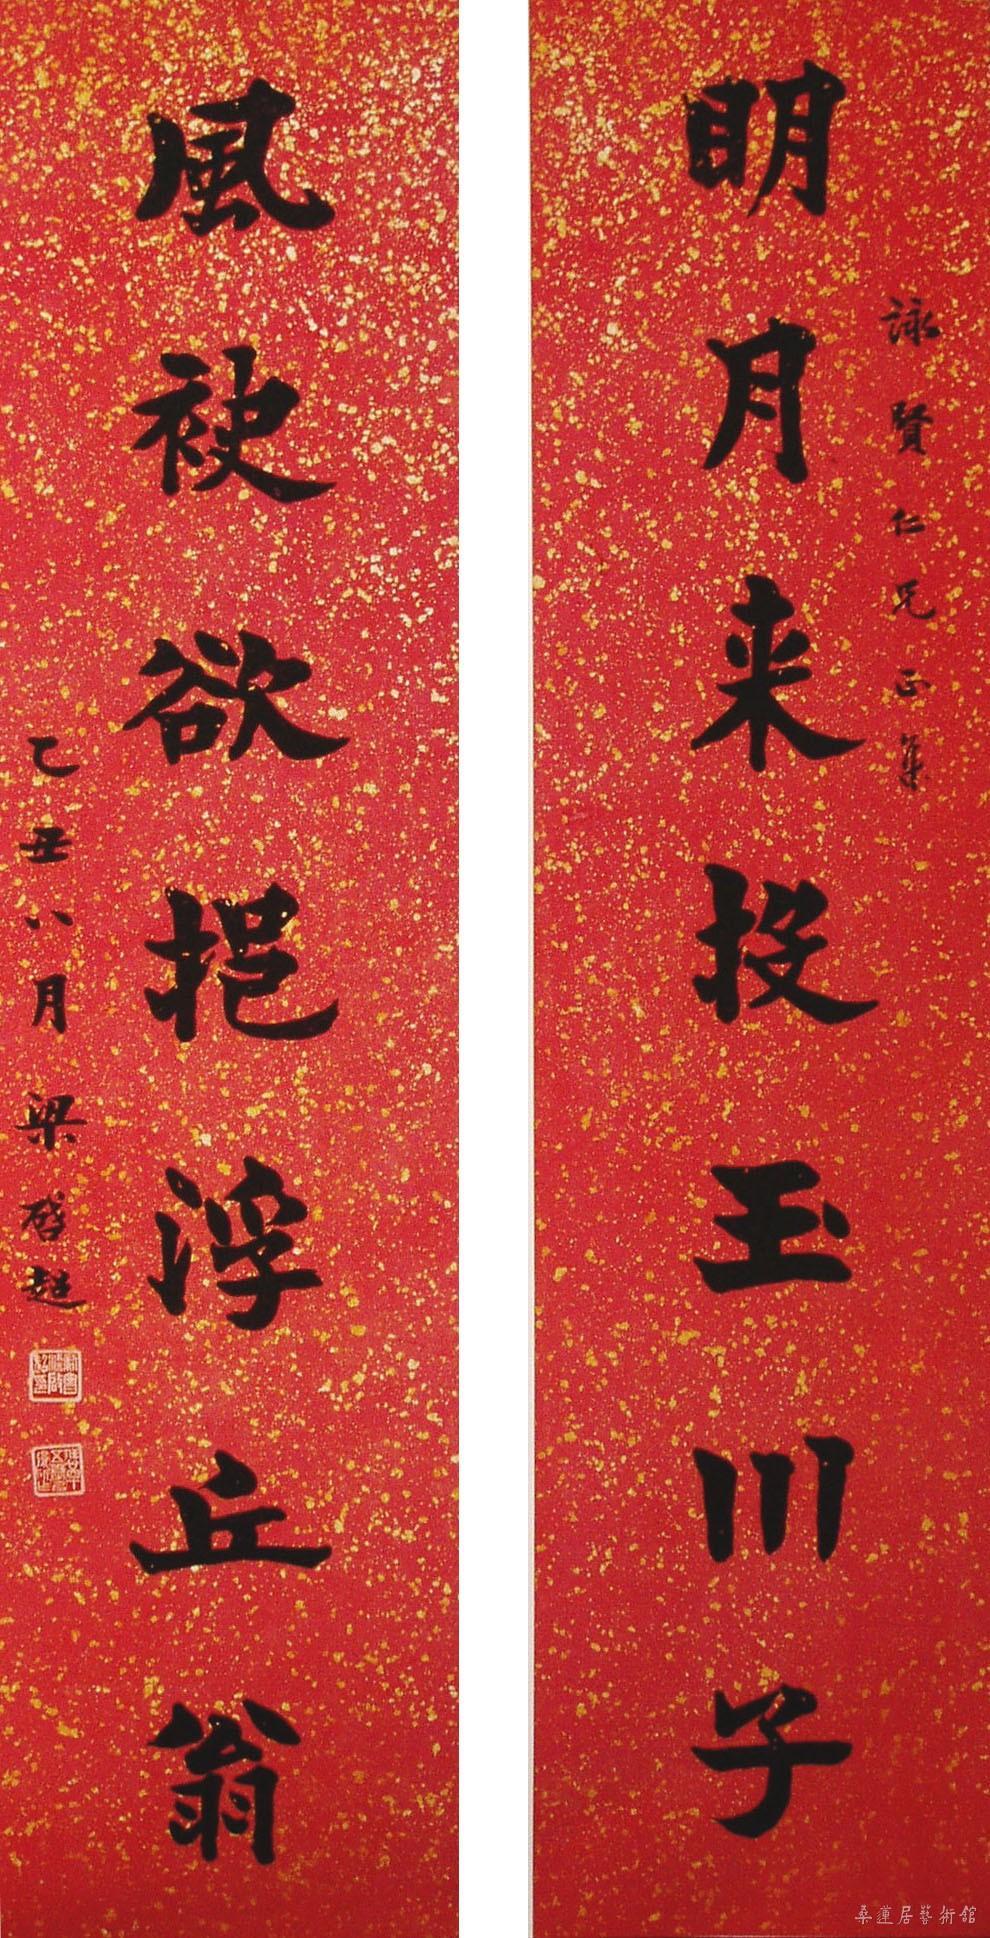 詠賢仁兄正集
明月来投玉川子
風袂欲挹浮丘翁
乙丑八月梁啓超
新會梁啟超印
桑蓮居藝術館